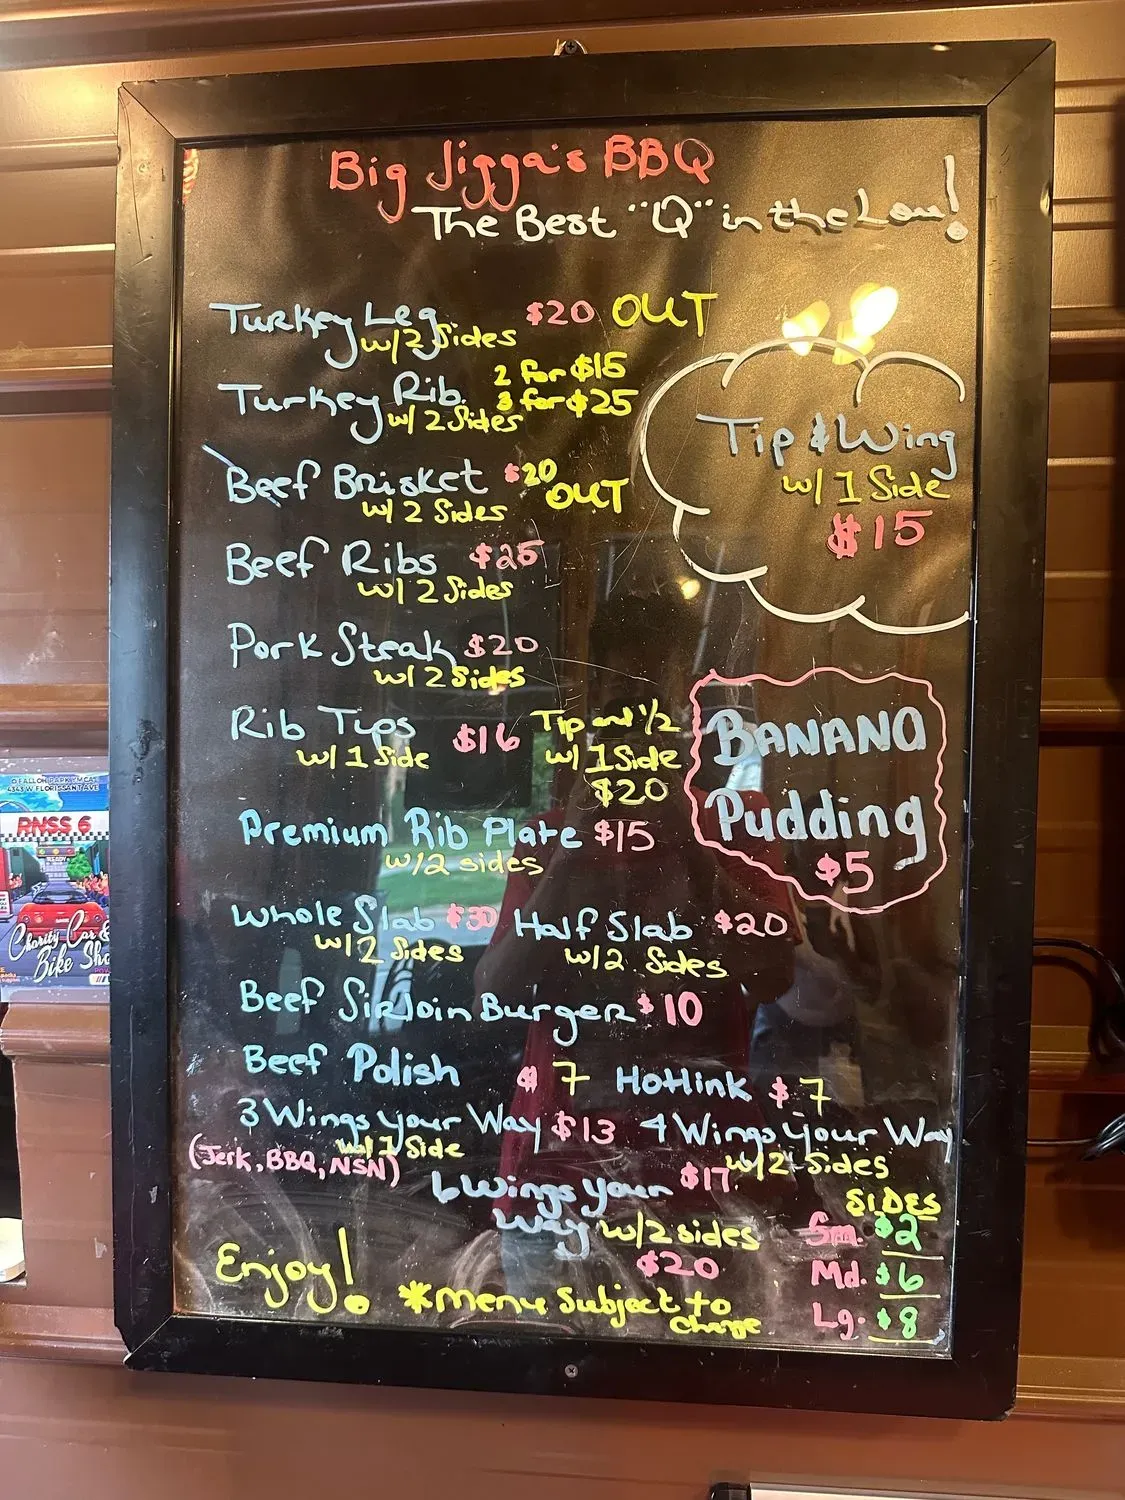 Big Jigga's BBQ
The Best "Q" in the Lou!
Turkey Leg $20 OUT
w/2 Sides
Turkey Rib 2 for $15
3 for $25
w/ 2 Sides
Tip & Wing
w/ 1 Side
$15
Beef Brisket $20 OUT
w/ 2 Sides
Beef Ribs $25
w/ 2 Sides
Pork Steak $20
w/ 2 Sides
Rib Tips $16
w/ 1 Side
Tip and 1/2
w/ 1 Side
$20
BANANA
Pudding
$5
Premium Rib Plate $15
w/2 sides
Whole Slab $30 Half Slab $20
w/2 Sides w/2 Sides
Beef Sirloin Burger $10
Beef Polish $7 Hotlink $7
3 Wings your Way $13 4 Wings your Way
w/1 Side w/2 Sides
(Jerk, BBQ, NSN) $17
6 Wings your
Way w/2 sides
$20
SIDES
Sm. $2
Md. $6
Lg. $8
Enjoy!
*menu Subject to
change
O'FALLON PARK YMCA
4343 W FLORISSANT AVE
RNSS 6
Charity Car &
Bike Sho